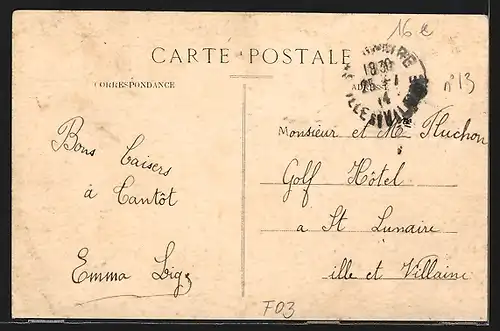 16 €
CARTE POSTALE
CORRESPONDANCE
ADRESSE
n° 13
18 30
25
14
ILLE & VILAINE
Bons Baisers
à Tantôt
Emma
Monsieur et Me Fluchon
Golf Hôtel
a St Lunaire
ille et Villaine
F03